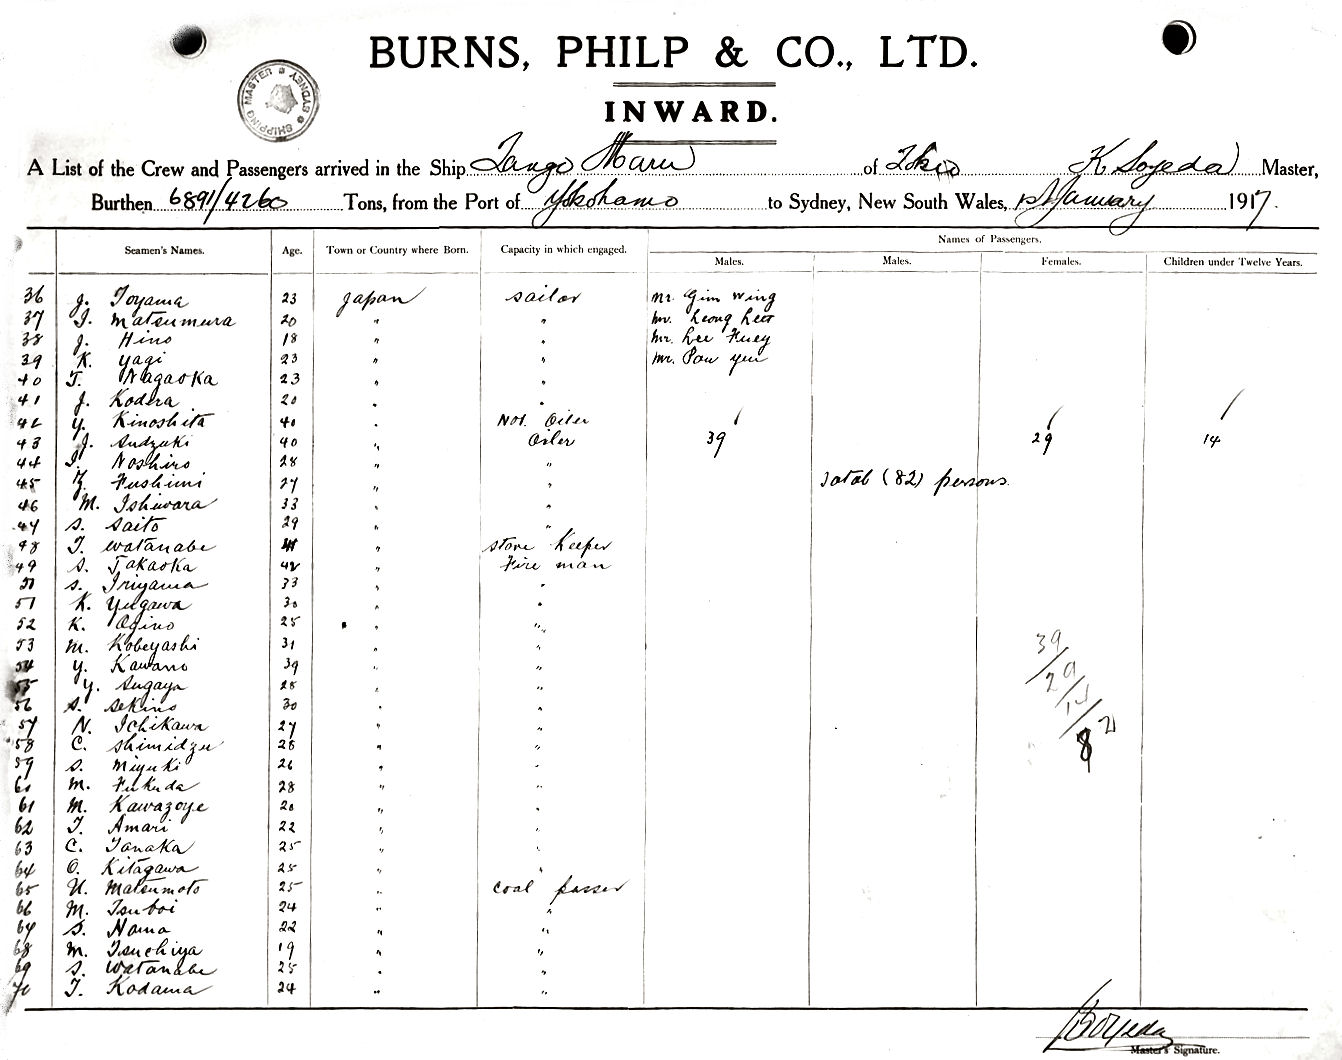 BURNS, PHILP & CO., LTD.
INWARD.
SHIPPING MASTER SYDNEY
A List of the Crew and Passengers arrived in the Ship Tango Maru of Tokio K Soyeda Master,
Burthen 6891/4260 Tons, from the Port of Yokohama to Sydney, New South Wales, 1st January 1917.
Names of Passengers.
Seamen's Names. Age. Town or Country where Born. Capacity in which engaged. Males. Males. Females. Children under Twelve Years.
36 J. Toyama 23 Japan sailor Mr. Gim Wing
37 I. Matsumura 20 " " Mr. Leong Lett
38 J. Hino 18 " " Mr. Lee Fuey
39 K. Yagi 23 " " Mr. Pow yui
40 T. Nagaoka 23 " "
41 J. Kodera 20 " "
42 Y. Kinoshita 40 " No1. Oiler
43 J. Sudzuki 40 " Oiler 39 29 14
44 I. Noshiro 28 " "
45 Z. Fushimi 27 " " Total (82) persons.
46 M. Ishiwara 33 " "
47 S. Saito 29 " "
48 T. Watanabe 41 " store Keeper
49 S. Takaoka 42 " Fire man
50 S. Iriyama 33 " "
51 K. Yugawa 30 " "
52 K. Ogino 25 " "
53 M. Kobeyashi 31 " "
54 Y. Kawano 39 " "
55 Y. Sugaya 28 " "
56 S. Sekino 30 " "
57 N. Ichikawa 27 " "
58 C. Shimidzu 26 " "
59 S. Miyuki 26 " "
60 M. Fukuda 28 " "
61 M. Kawazoye 20 " "
62 T. Amari 22 " "
63 C. Tanaka 25 " "
64 O. Kitagawa 25 " "
65 U. Matsumoto 25 " coal passer
66 M. Tsuboi 24 " "
67 S. Noma 22 " "
68 M. Tsuchiya 19 " "
69 S. Watanabe 25 " "
70 T. Kodama 24 " "
39
29
14
82
K Soyeda
Master's Signature.